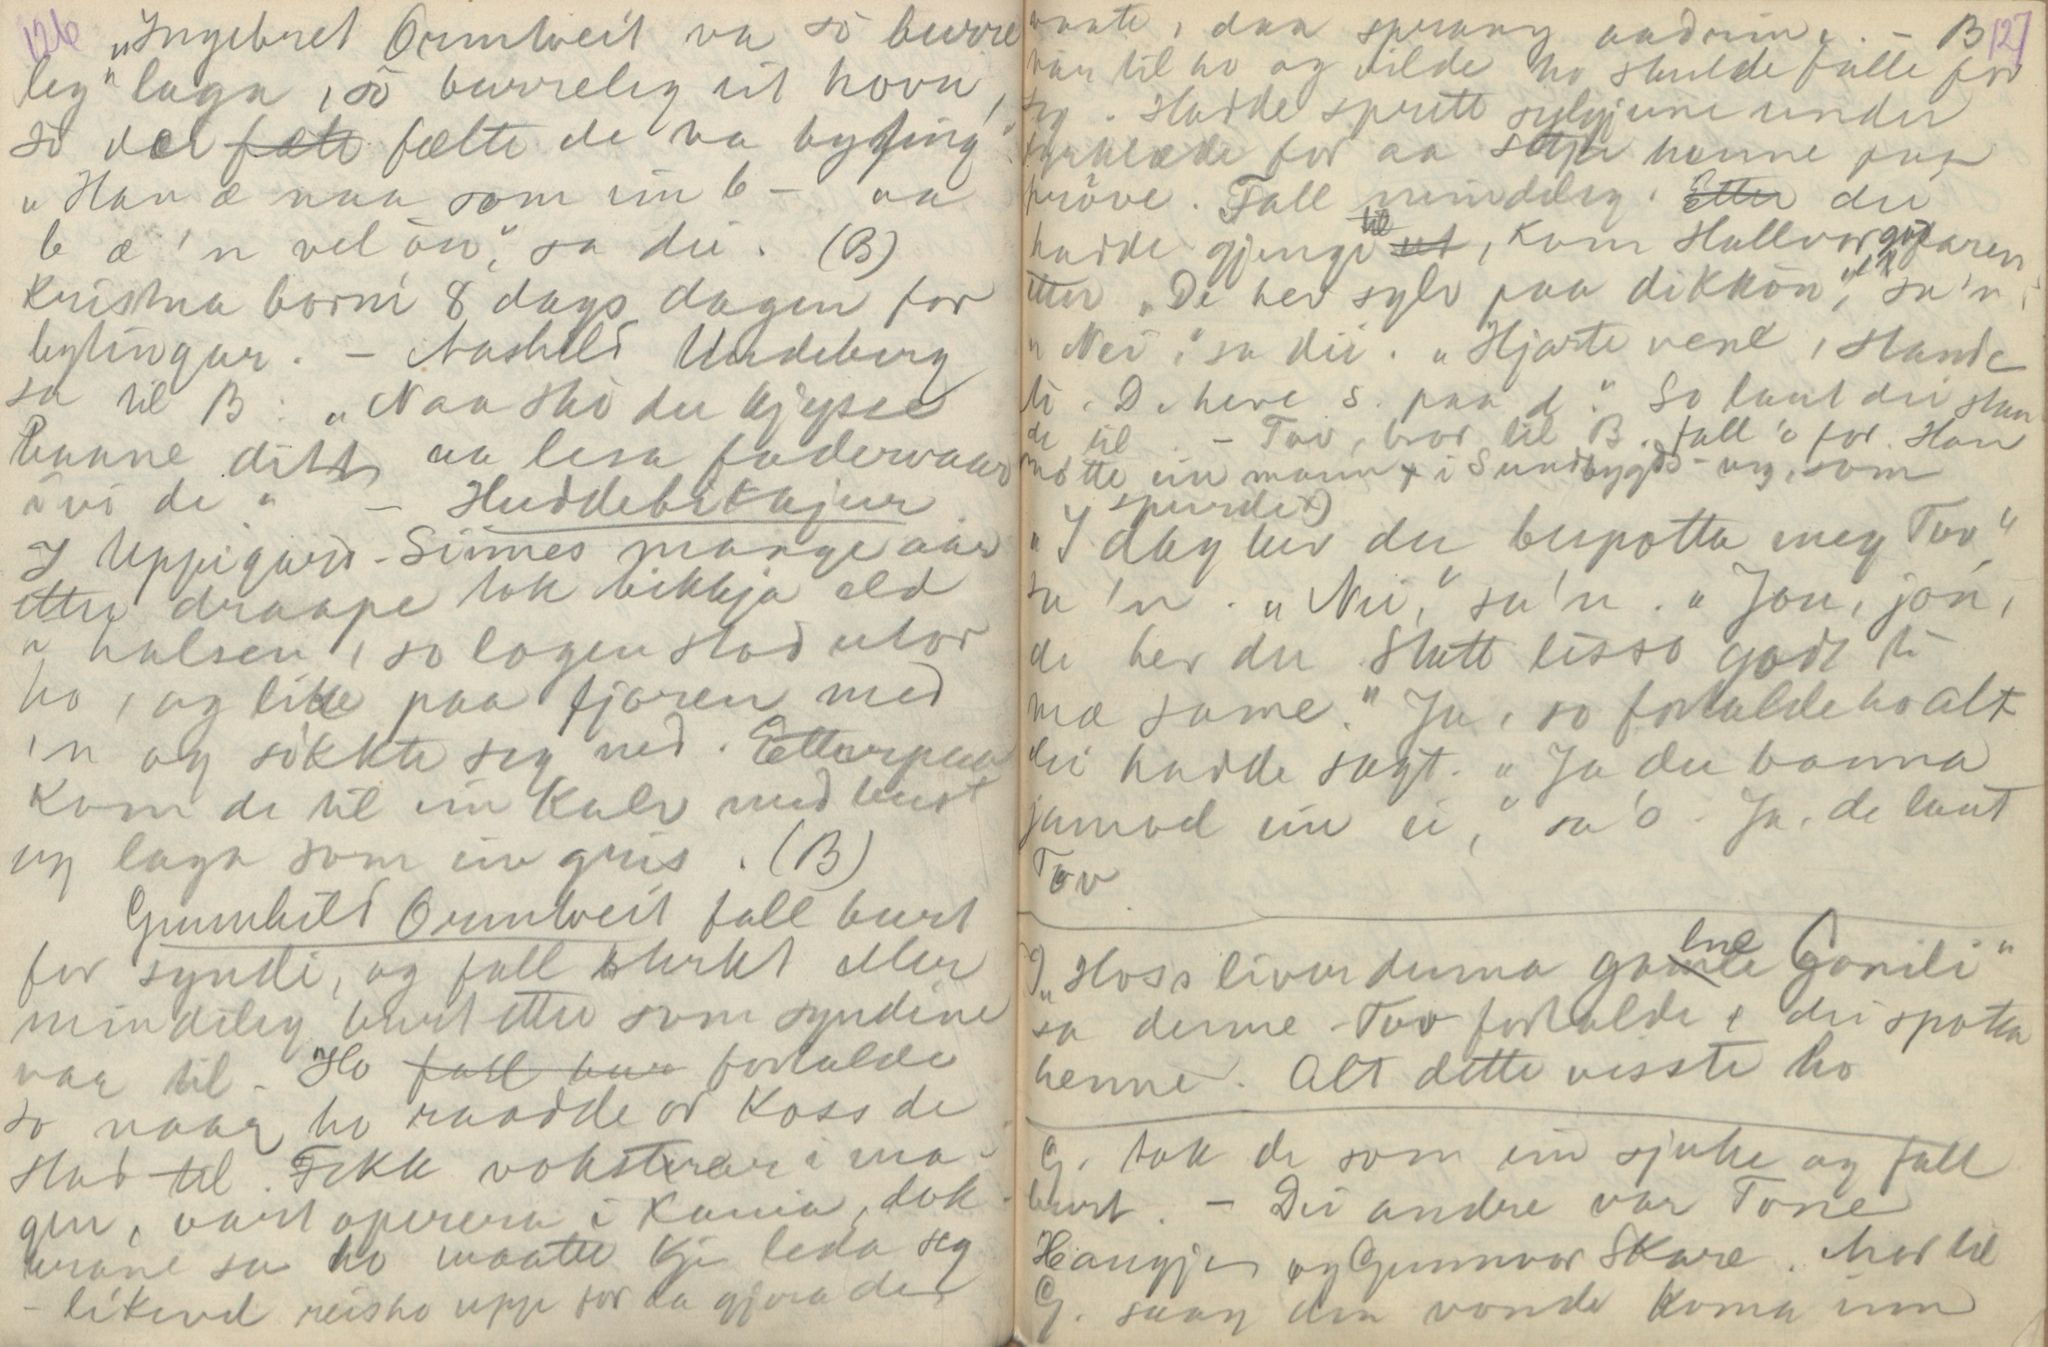 126
"Ingebret Ormtveit va so burre
leg" laga, so burreleg ut hovu,
so dei fælte de va byting"
"Han æ naa som ein b - aa
b æ 'n vel òu," sa dei. (B)
Kristna borni 8 dags dagen for
bytingar. - Aashild Urdeberg
sa til B: "Naa sko du kjysse
baane ditt aa lesa fadervaar
ivi de" - Huddebikkjur
I Uppigard-Sinnes mange aar
etter draape tok bikkja eld
i halsen, so logen stod utor
ho, og like paa fjoren med
'n og sökkte seg ned. Etterpaa
kom de til ein kalv med bust
og laga som ein gris. (B)
Gunnhild Ormtveit fall burt
for syndi, og fall sterkt eller
mindeleg burt etter som syndine
var til. Ho fall bur fortalde
so naar ho raadde or koss de
stod til. Fekk vokster i ma-
gen, vart operera i Kania, dok-
terane sa ho maatte kje leda seg
- likevel reiste ho upp for da gjora de
127
maate, daa sprang aadrin. - B
var til ho og vilde ho skulde falle for
seg. Hadde sprett sylgjune under
fyrklæde for aa setja henne paa
pröve. Fall mindeleg. Etter dei
hadde gjengi til ut, kom Hallvor
etter "De her sylv paa dikkòn," sa'n,
"Nei," sa dei. "Hjarte vene, stande
ti. De heve s. paa d." So laut dei stan
de til. - Tov, bror til B. fall 'o for. Han
mötte ein mann x i Sundbygds-veg, som
spurde x)
"I dag her du bespotta meg Tov"
sa 'n. "Nei," sa'n. "Jou, jou,
de her du. Slutt lisso godt ti
mæ same." Ja, so fortalde ho alt
dei hadde sagt. "Ja du banna
jamvel ein ei," sa 'o. Ja, de laut
Tov
"Hoss liver denna gamle lne Gonili"
sa denne Tov fortalde, dei spotta
henne. Alt dette visste ho
G. tok de som ein sjuke og fall
burt. - Dei andre var Tone
Haugjen og Gunnvor Skare. Mor til
G. saag den vonde koma inn